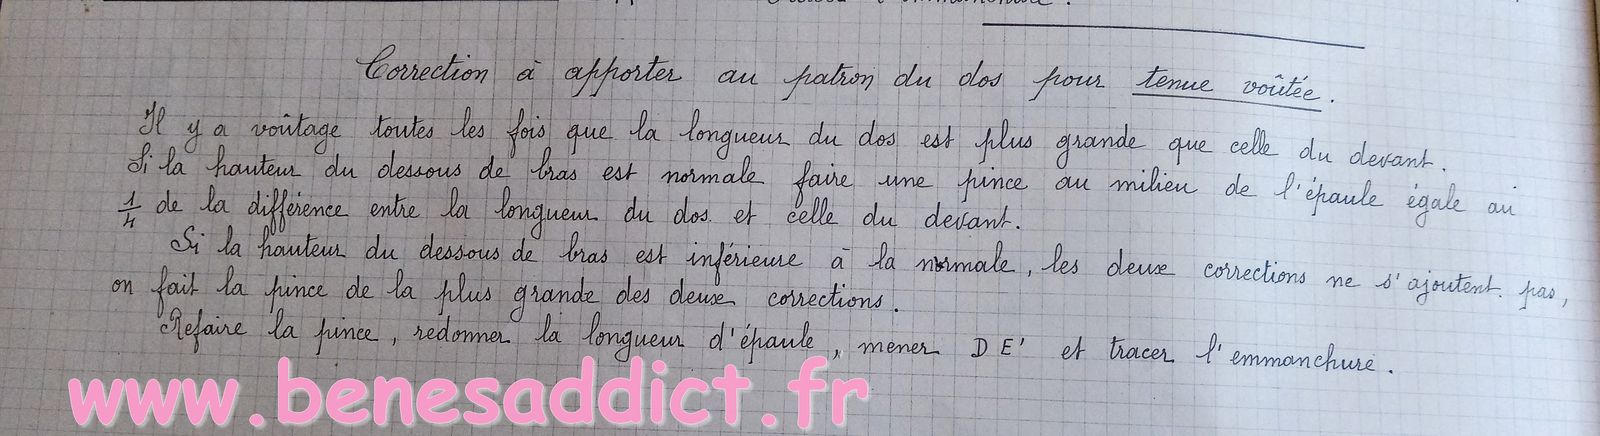 Correction à apporter au patron du dos pour tenue voûtée.
Il y a voûtage toutes les fois que la longueur du dos est plus grande que celle du devant.
Si la hauteur du dessous de bras est normale faire une pince au milieu de l'épaule égale au
1/4 de la différence entre la longueur du dos et celle du devant.
Si la hauteur du dessous de bras est inférieure à la normale, les deux corrections ne s'ajoutent pas,
on fait la pince de la plus grande des deux corrections.
Refaire la pince, redonner la longueur d'épaule, mener D E' et tracer l'emmanchure.
www.benesaddict.fr